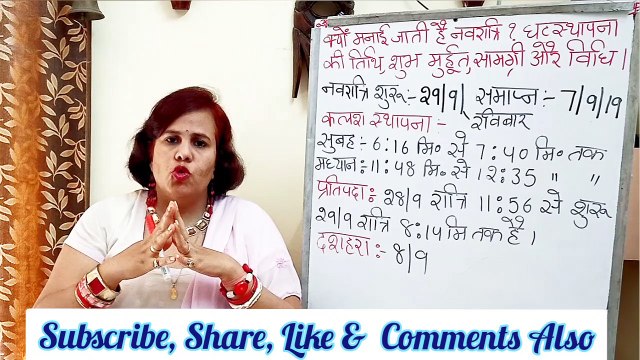 क्यों मनाई जाती है नवरात्रि ? घटस्थापना
की तिथि, शुभ मुर्हूत, सामग्री और विधि ।
नवरात्रि शुरू:- 29/9 समाप्न:- 7/9/19
कलश स्थापना:- रविवार
सुबह:- 6:16 मि॰ से 7:40 मि॰ तक
मध्यान:- 11:48 मि॰ से 12:35 " "
प्रतिपदा:- 28/9 रात्रि 11:56 से शुरू
29/9 रात्रि 8:14 मि तक है ।
दशहरा:- 8/9
Subscribe, Share, Like & Comments Also